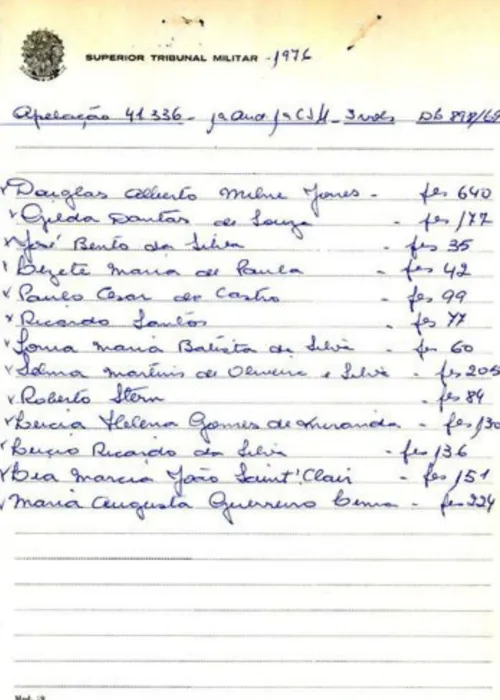 SUPERIOR TRIBUNAL MILITAR - 1976
Apelação 41.336 - 1ª Aud 1ª CJM - 3 vols
Douglas Alberto Milne Jones - fls 640
Gilda Dantas de Souza - fls 177
José Bento da Silva - fls 35
Maria de Paula - fls 42
Paulo Cesar de Castro - fls 99
Ricardo Santos - fls 77
Sonia Maria Batista da Silva - fls 60
Selma Martins de Oliveira e Silva - fls 205
Roberto Stern - fls 84
Helena Gomes de Miranda - fls 130
Ricardo da Silva - fls 136
Marcia João Saint'Clair - fls 151
Maria Augusta Guerreiro - fls 224